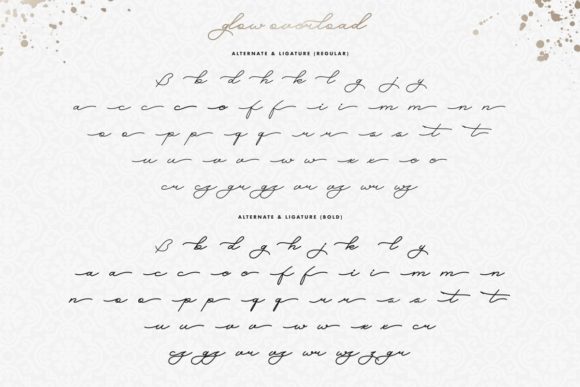 glow overload
ALTERNATE & LIGATURE (REGULAR)
B b d h k l g j y
a c c c o f f i i m m n n
o o p p q q r r s s t t
u u v v w w x x o o
cr cz gr gz vr vz wr wz
ALTERNATE & LIGATURE (BOLD)
B b d g h j k t y
a a c c o o f f i i m m n
n o o p p q q r r s s t t
u u v v w w x x cr
cz gz vr vz wr wz z gr